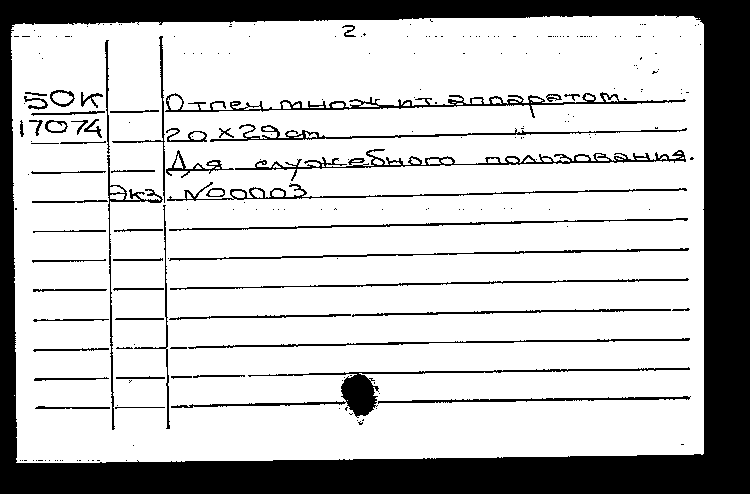 2.
50К Отпеч. множит. аппаратом.
17074 20 × 29 cm.
Для служебного пользования.
Экз. №00003.